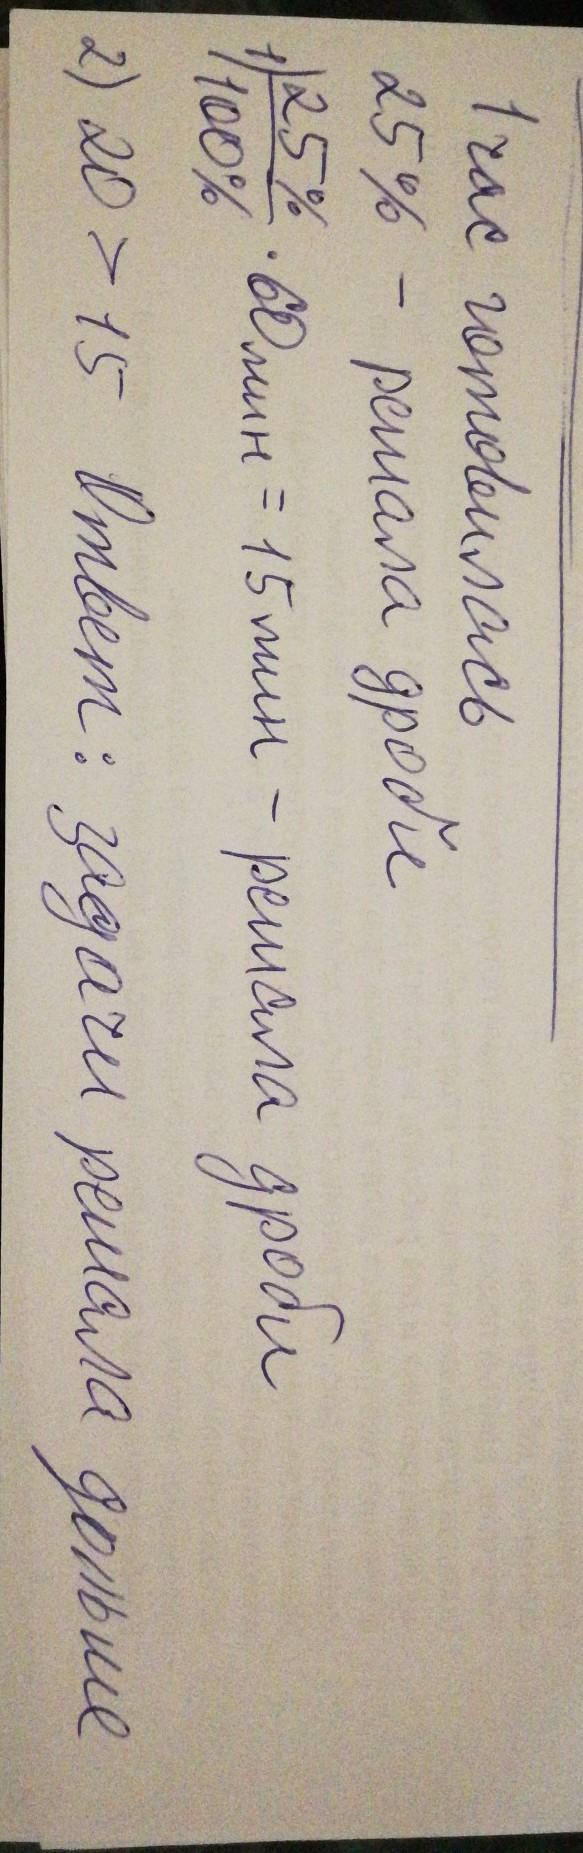 1 час готовилась
25% - решала дроби
1) 25%/100% · 60 мин = 15 мин - решала дроби
2) 20 > 15 Ответ: задачи решала дольше